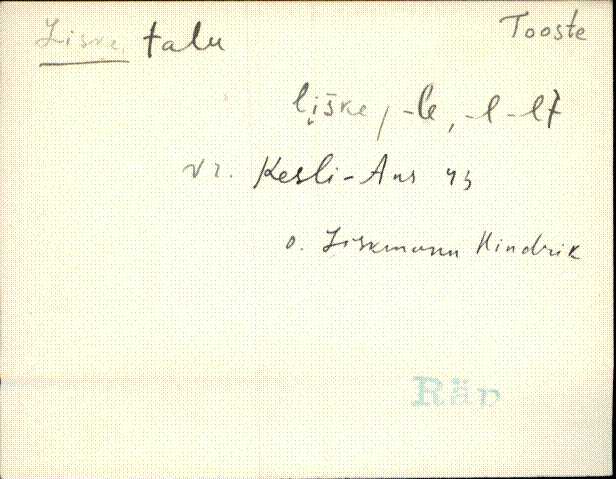 Liske talu Tooste
ľiške, -le, -l -lt
vr. Kesli-Ans 43
o. Liskmann Hindrik
Räp